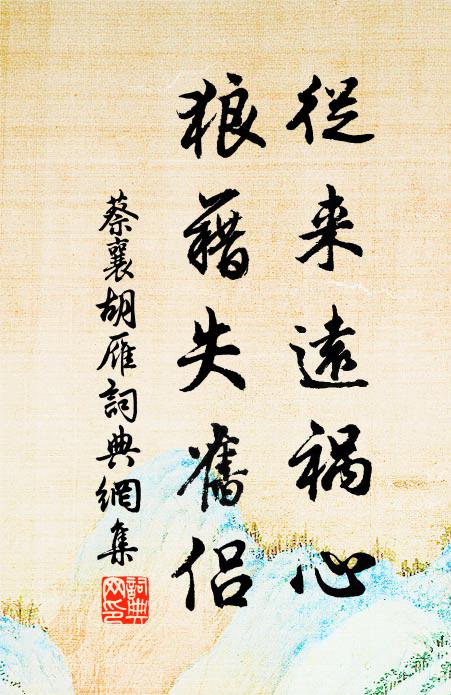 從来遠禍心
狼藉失舊侶
蔡襄胡雁詞典網集
詞典网印